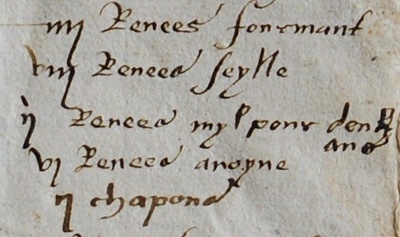 iiii Renees fourmant
viii Renees seylle
ii Renees myl pour deux
ans
vi Renees avoyne
ii chapons